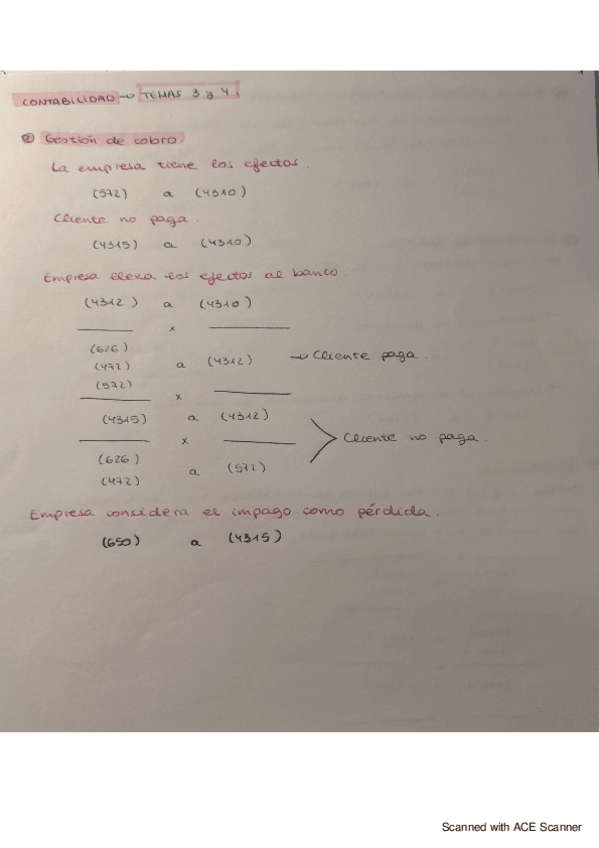 CONTABILIDAD → TEMAS 3 y 4.
① Gestión de cobro.
La empresa tiene los efectos.
(572) a (4310)
Cliente no paga.
(4315) a (4310)
Empresa lleva los efectos al banco.
(4312) a (4310)
x
(626)
(472) a (4312) → Cliente paga.
(572)
x
(4315) a (4312)
x Cliente no paga.
(626)
(472) a (572)
Empresa considera el impago como pérdida.
(650) a (4315)
Scanned with ACE Scanner